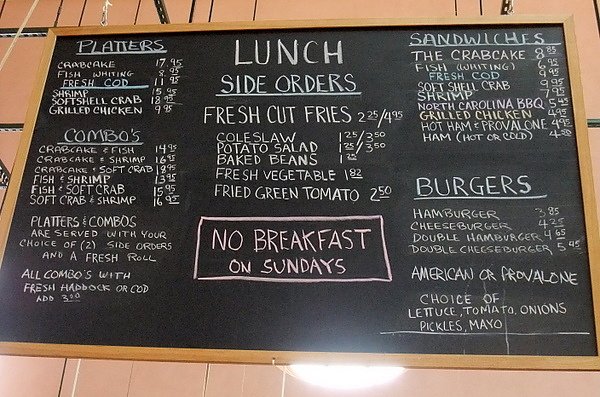 PLATTERS
CRABCAKE 17.95
FISH WHITING 8.95
FRESH COD 11.95
SHRIMP 15.95
SOFTSHELL CRAB 18.95
GRILLED CHICKEN 9.95
COMBO'S
CRABCAKE & FISH 14.95
CRABCAKE & SHRIMP 16.95
CRABCAKE & SOFT CRAB 18.95
FISH & SHRIMP 13.95
FISH & SOFT CRAB 15.95
SHRIMP & SOFT CRAB 16.95
PLATTERS & COMBOS
ARE SERVED WITH YOUR
CHOICE OF (2) SIDE ORDERS
AND A FRESH ROLL
ALL COMBO'S WITH
FRESH HADDOCK OR COD
ADD 3.00
LUNCH
SIDE ORDERS
FRESH CUT FRIES 2.25/4.95
COLESLAW 1.25/3.50
POTATO SALAD 1.25/3.50
BAKED BEANS 1.25
FRESH VEGETABLE 1.82
FRIED GREEN TOMATO 2.50
NO BREAKFAST
ON SUNDAYS
SANDWICHES
THE CRABCAKE 8.85
FISH (WHITING) 6.95
FRESH COD 9.95
SOFT SHELL CRAB 9.95
SHRIMP 7.95
NORTH CAROLINA BBQ 5.45
GRILLED CHICKEN 4.95
HOT HAM & PROVALONE 4.95
HAM (HOT OR COLD)
BURGERS
HAMBURGER 3.85
CHEESEBURGER 4.25
DOUBLE HAMBURGER 4.65
DOUBLE CHEESEBURGER 5.45
AMERICAN OR PROVALONE
CHOICE OF
LETTUCE, TOMATO, ONIONS
PICKLES, MAYO